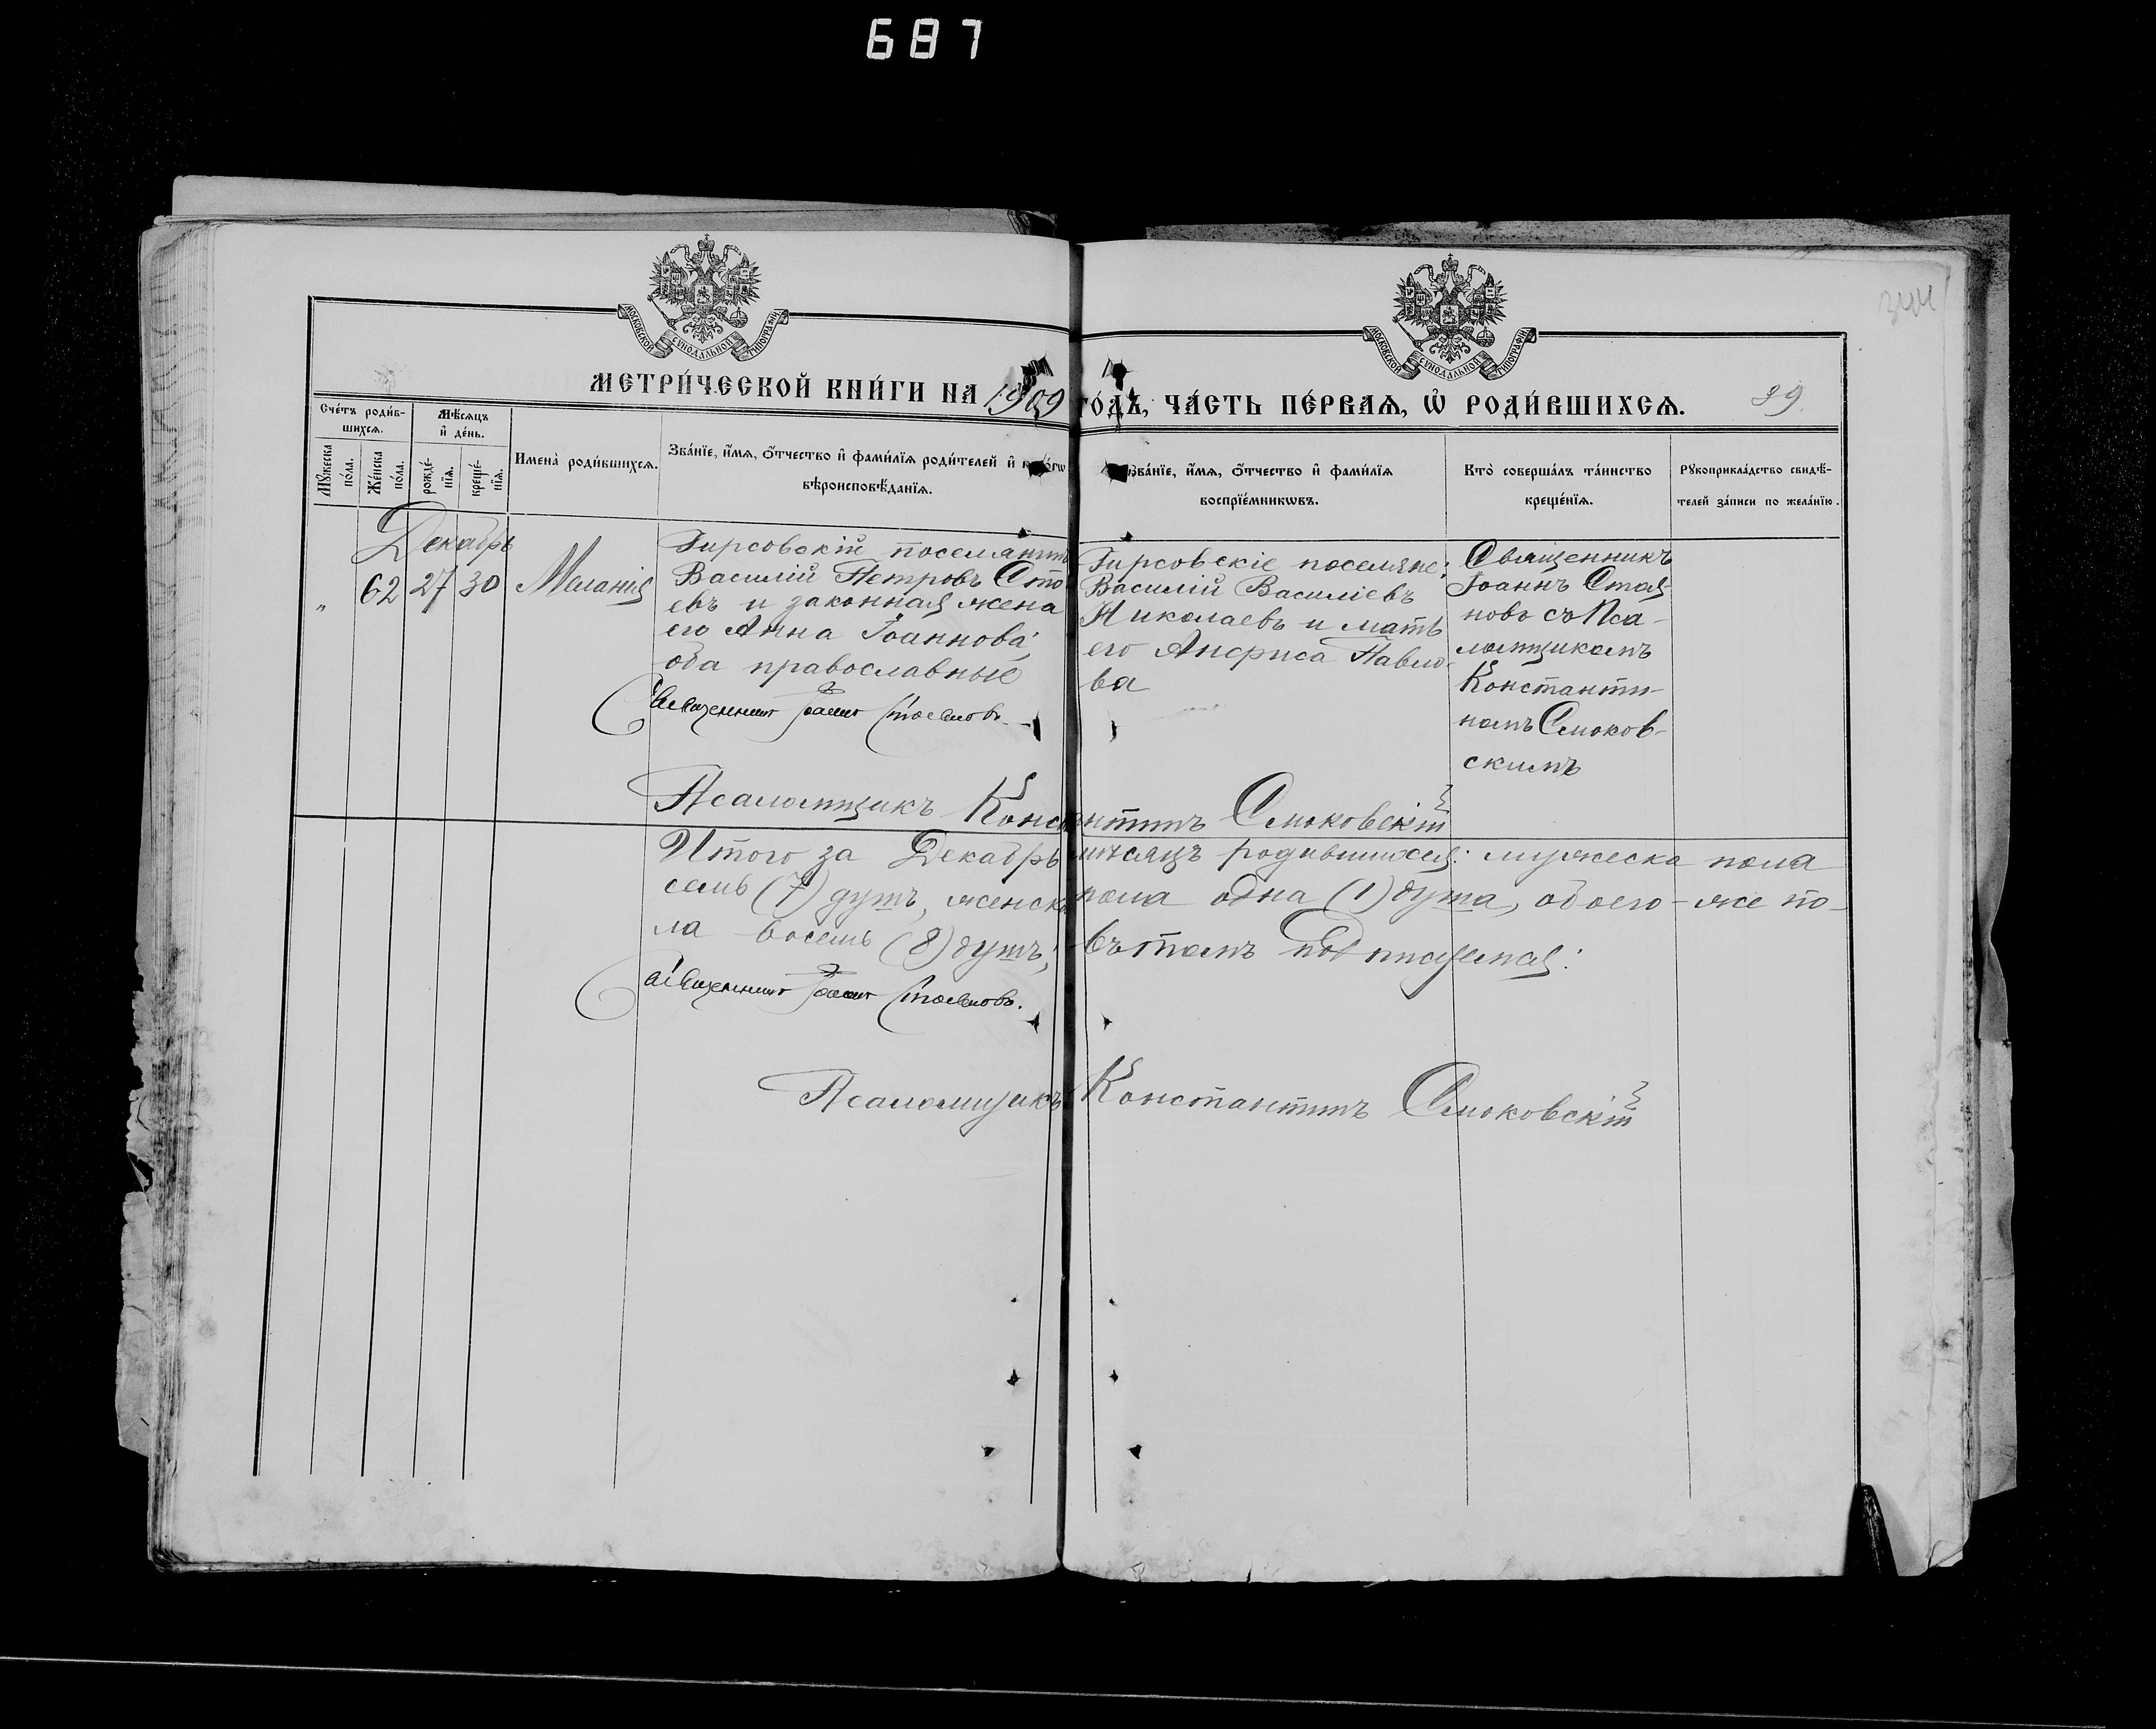 687
МОСКОВСКОЙ СУНОДАЛЬНОЙ ТИПОГРАФІИ
МОСКОВСКОЙ СУНОДАЛЬНОЙ ТИПОГРАФІИ
МЕТРИ́ЧЕСКОЙ КНИ́ГИ НА 1909
ГО́ДЪ, ЧА́СТЬ ПЕ́РВАѦ, Ѡ҆ РОДИ́ВШИХСѦ.
39.
Сче́тъ роди́в-
шихсѧ.
Мꙋ́жеска по́ла.
Же́нска по́ла.
Мѣ́сѧцъ
и҆ де́нь.
рожде́-
нїѧ.
креще́-
нїѧ.
Имена̀ роди́вшихсѧ.
Зва́нїе, и҆́мѧ, ѻ҆́тчество и҆ фами́лїѧ роди́телей и҆
вѣроисповѣ́данїѧ.
Зва́нїе, и҆́мѧ, ѻ҆́тчество и҆ фами́лїѧ
воспрїе́мникѡвъ.
Кто̀ соверша́лъ та́инство
креще́нїѧ.
Рꙋкоприкла́дство свидѣ́-
телей за́писи по жела́нїю.
Декабрь
" 62 27 30 Меланія
Гирсовскій поселянинъ
Василій Петровъ Сто-
евъ и законная жена
его Анна Іоаннова;
оба православные
Священникъ Іоаннъ Стояновъ.
Гирсовскіе поселяне:
Василій Василіевъ
Николаевъ и мать
его Анфиса Павло-
ва
Священникъ
Іоаннъ Стоя-
новъ съ Пса-
ломщикомъ
Константи-
номъ Смоков-
скимъ
Псаломщикъ Константинъ Смоковскій
Итого за Декабрь мѣсяцъ родившихся: мужеска пола
семь (7) душъ, женска пола одна (1) душа, обоего-же по-
ла восемь (8) душъ; въ томъ подпишемся:
Священникъ Іоаннъ Стояновъ.
Псаломщикъ Константинъ Смоковскій